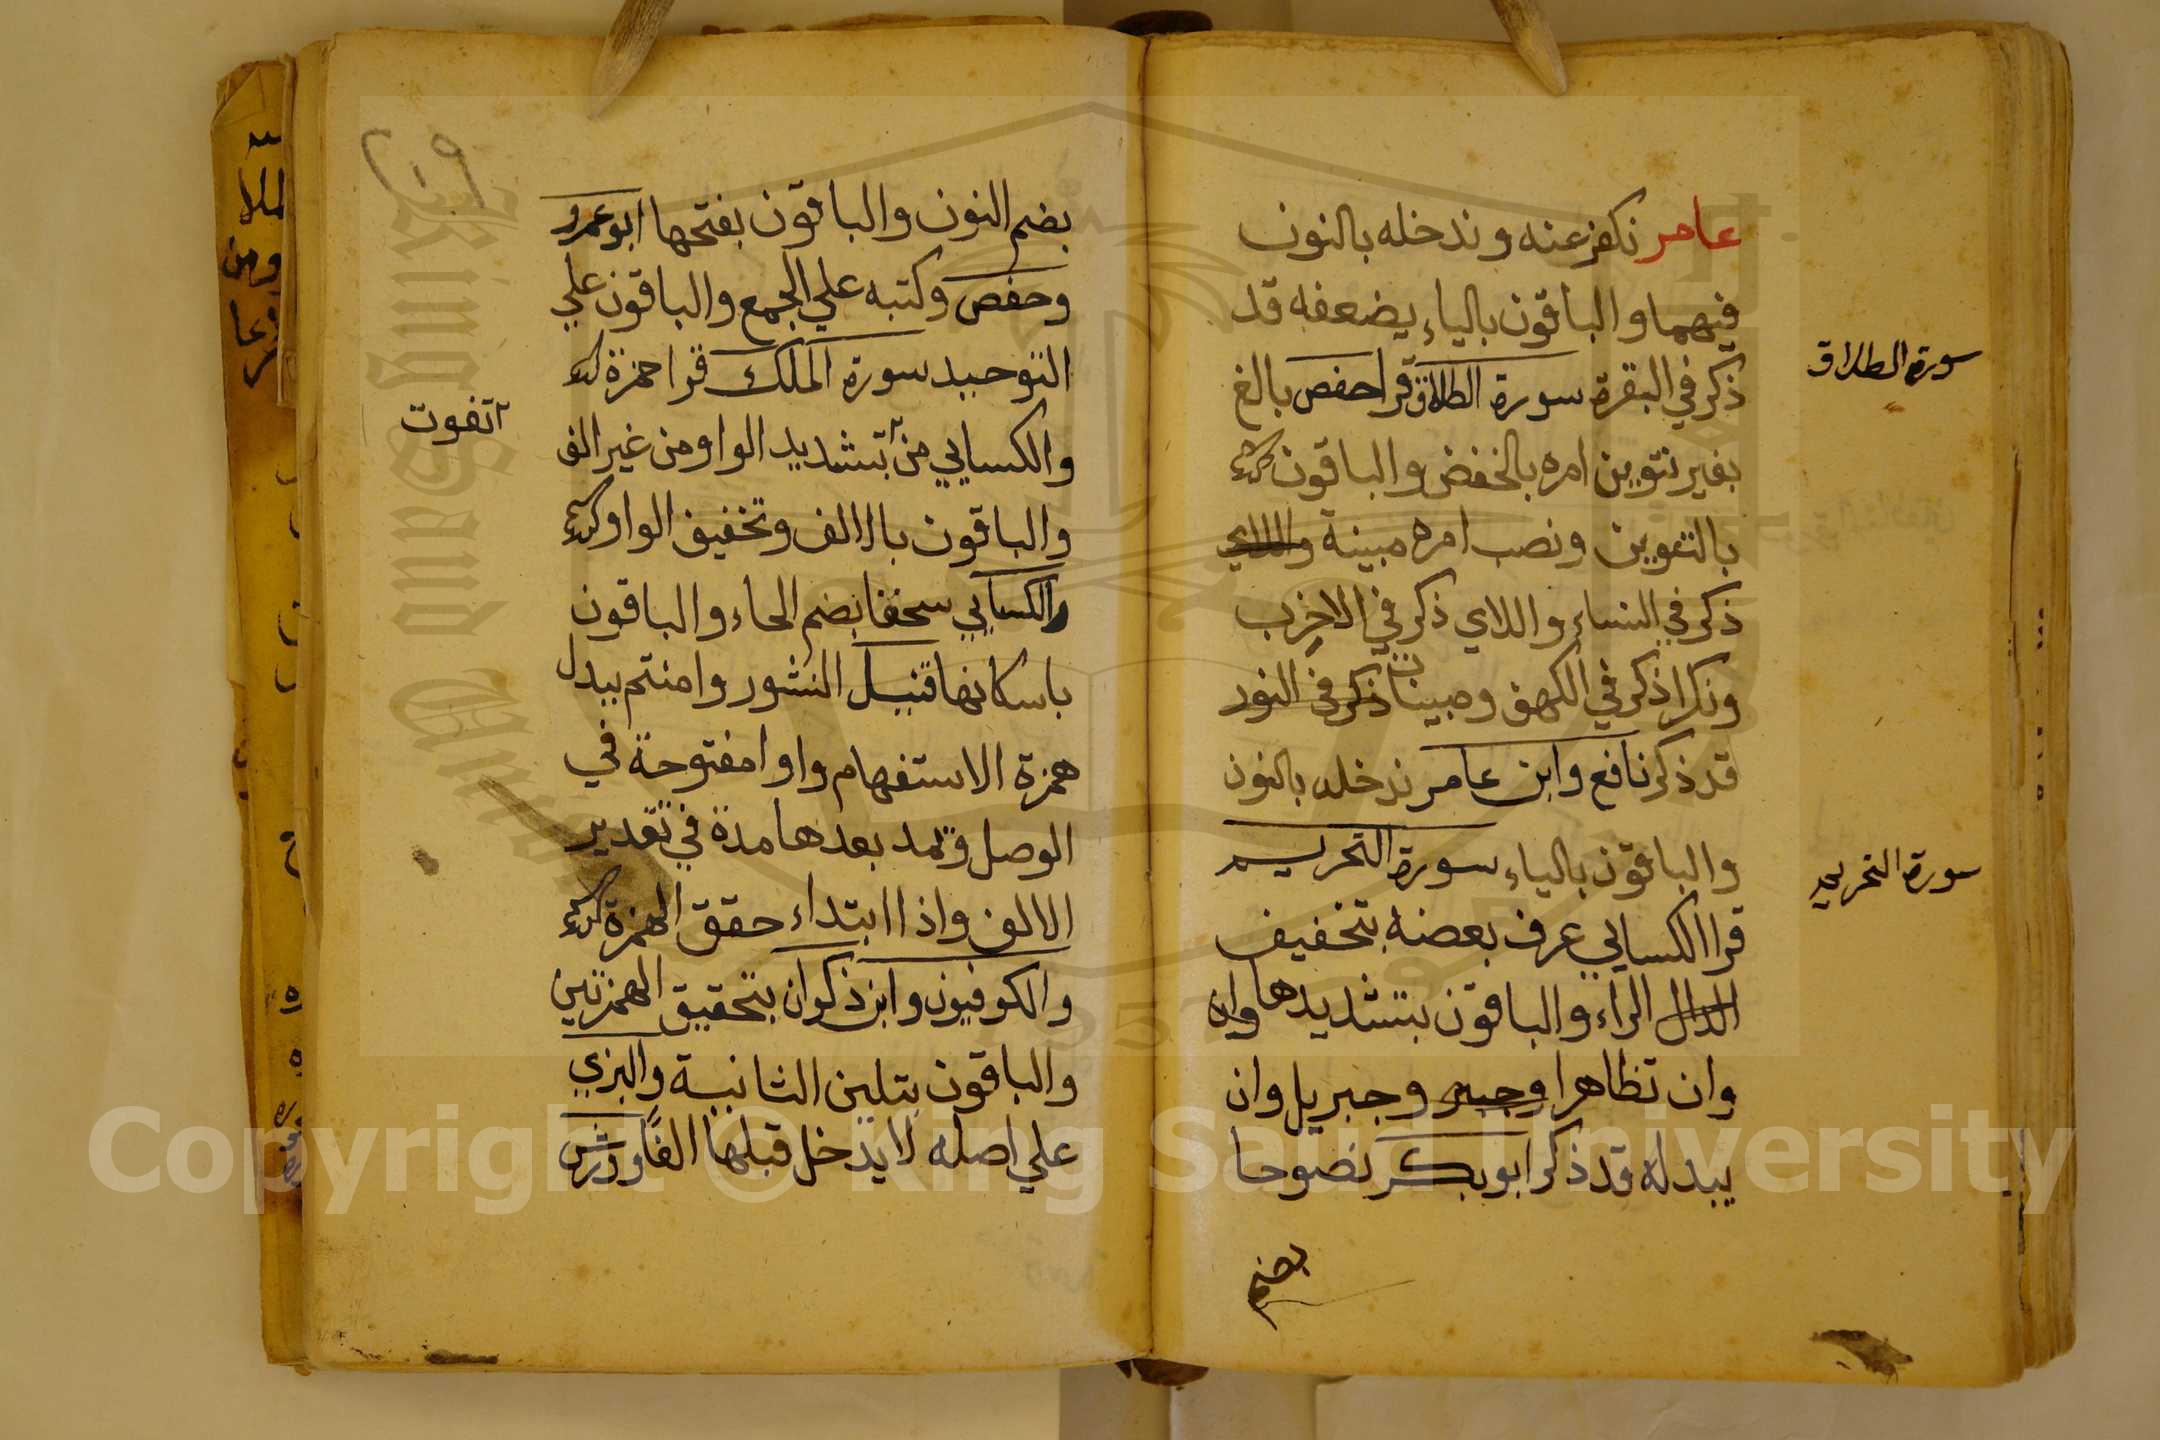 عامر نكفر عنه وندخله بالنون
فيهما والباقون بالياء يضعفه قد
ذكر في البقرة سورة الطلاق قرا حفص بالغ
بغير تنوين امره بالخفض والباقون
بالتنوين ونصب امره مبينة واللاي
ذكر في النساء واللاي ذكر في الاحزب
ونكرا ذكر في الكهف ومبينات ذكر في النور
قد ذكر نافع وابن عامر ندخله بالنون
والباقون بالياء سورة التحريم
قرا الكسايي عرف بعضه بتخفيف
الدال الراء والباقون بتشديدها وان
وان تظاهرا وجبر وجبريل وان
يبدله قد ذكر ابو بكر نصوحا
بضم
سورة الطلاق
سورة التحريم
بضم النون والباقون بفتحها ابو عمرو
وحفص وكتبه علي الجمع والباقون علي
التوحيد سورة الملك قرا حمزة
والكسايي من بتشديد الواو من غير الف
والباقون بالالف وتخفيف الواو
والكسايي سحقا بضم الحاء والباقون
باسكانها قنبل النشور وامنتم يبدل
همزة الاستفهام واوا مفتوحة في
الوصل ويمد بعدها مدة في تقدير
الالف واذا ابتداء حقق الهمزة
والكوفيون وابن ذكوان بتحقيق الهمزتين
والباقون بتلين الثانية والبزي
علي اصله لا يدخل قبلها الفا وورش
تفوت
Copyright © King Saud University